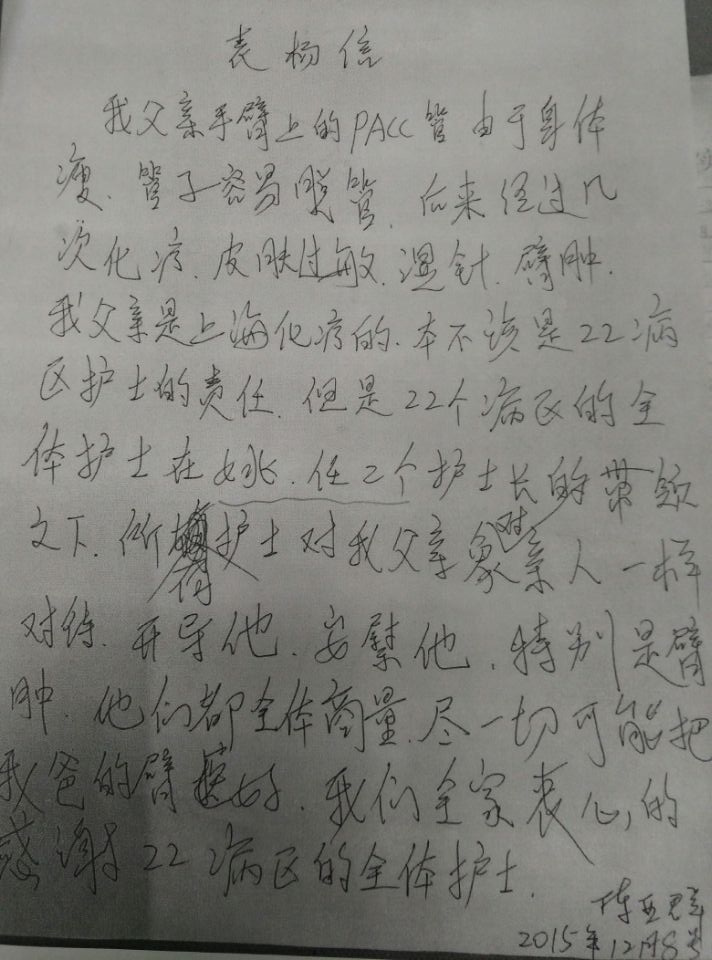 表杨信
我父亲手臂上的PACC管由于身体
瘦、管子容易脱管、后来经过几
次化疗、皮肤过敏、湿针、臂肿、
我父亲是上海化疗的、本不该是22病
区护士的责任、但是22个病区的全
体护士在姚、任2个护士长的带领
之下、所有护士对我父亲象对亲人一样
对待、开导他、安慰他、特别是臂
肿、他们都全体商量、尽一切可能把
我爸的臂 好、我们全家衷心的
感谢22病区的全体护士、
陈亚群
2015年12月8号